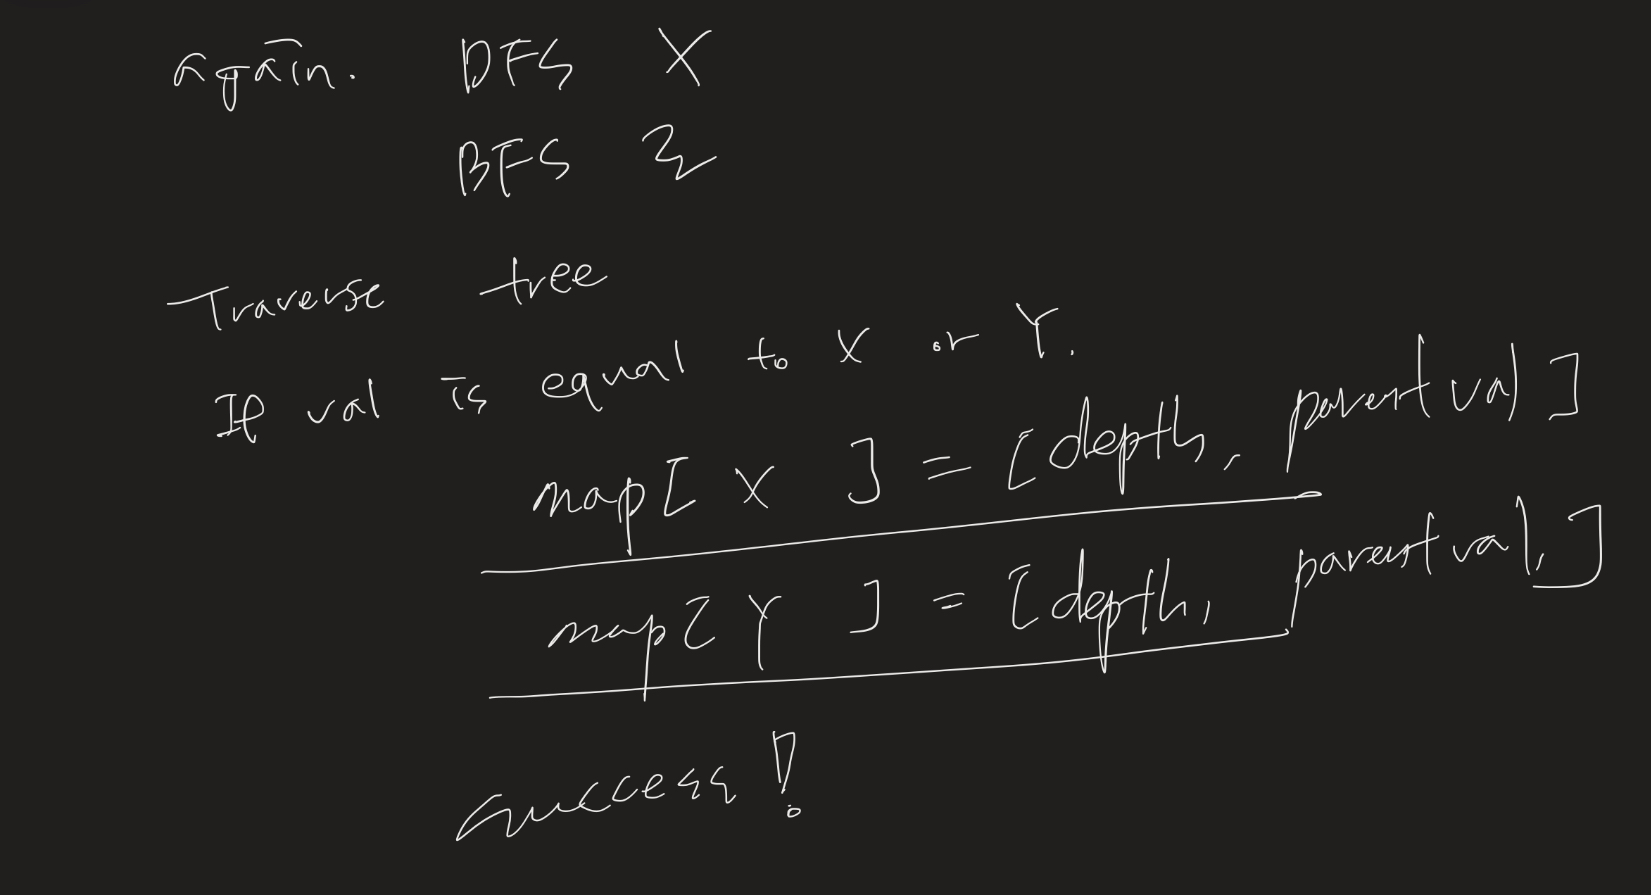 again. DFS X
BFS
Traverse tree
If val is equal to X or Y.
map[ X ] = [depth, parent val]
map[ Y ] = [depth, parent val,]
success!